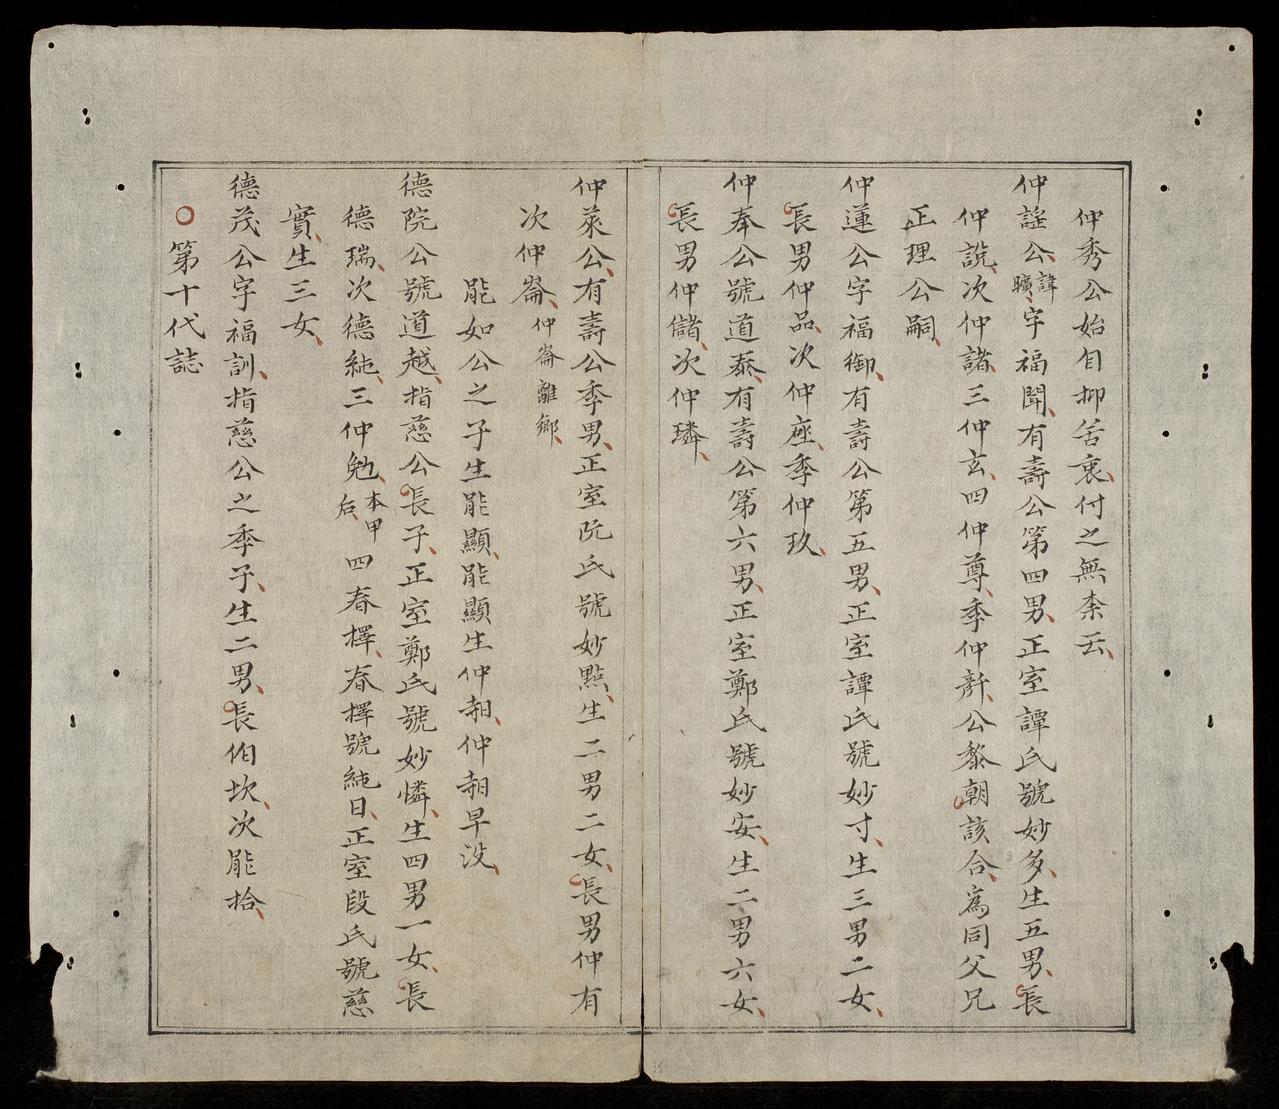 仲秀公始自抑舌衷付之無柰云
仲諡公諱曠字福聞有壽公第四男正室譚氏號妙多生五男長
仲說次仲諸三仲玄四仲尊季仲新公黎朝該合為同父兄
正理公嗣
仲蓮公字福御有壽公第五男正室譚氏號妙寸生三男二女
長男仲品次仲座季仲玖
仲奉公號道泰有壽公第六男正室鄭氏號妙安生二男六女
長男仲儲次仲璘
仲萊公有壽公季男正室阮氏號妙點生二男二女長男仲有
次仲崙仲崙離鄉
能如公之子生能顯能顯生仲朝仲朝早没
德院公號道越指慈公長子正室鄭氏號妙憐生四男一女長
德瑞次德純三仲勉本甲后四春擇春擇號純日正室段氏號慈
實生三女
德茂公字福訓指慈公之季子生二男長伯坎次能拾
第十代誌